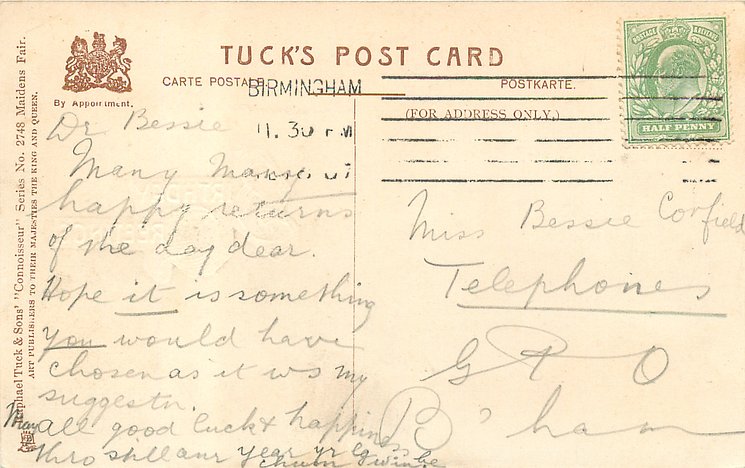 TUCK'S POST CARD
CARTE POSTALE
POSTKARTE.
(FOR ADDRESS ONLY.)
By Appointment.
BIRMINGHAM
11.30 PM
POSTAGE REVENUE
HALF PENNY
Raphael Tuck & Sons' "Connoisseur" Series No. 2748 Maidens Fair.
ART PUBLISHERS TO THEIR MAJESTIES THE KING AND QUEEN.
Dr Bessie
Many Many
happy returns
of the day dear.
Hope it is something
you would have
chosen as it ws my
suggestn.
May all good luck & happiness
thro still anr year yr
chum
Miss Bessie Corfield
Telephones
G P O
B'ham